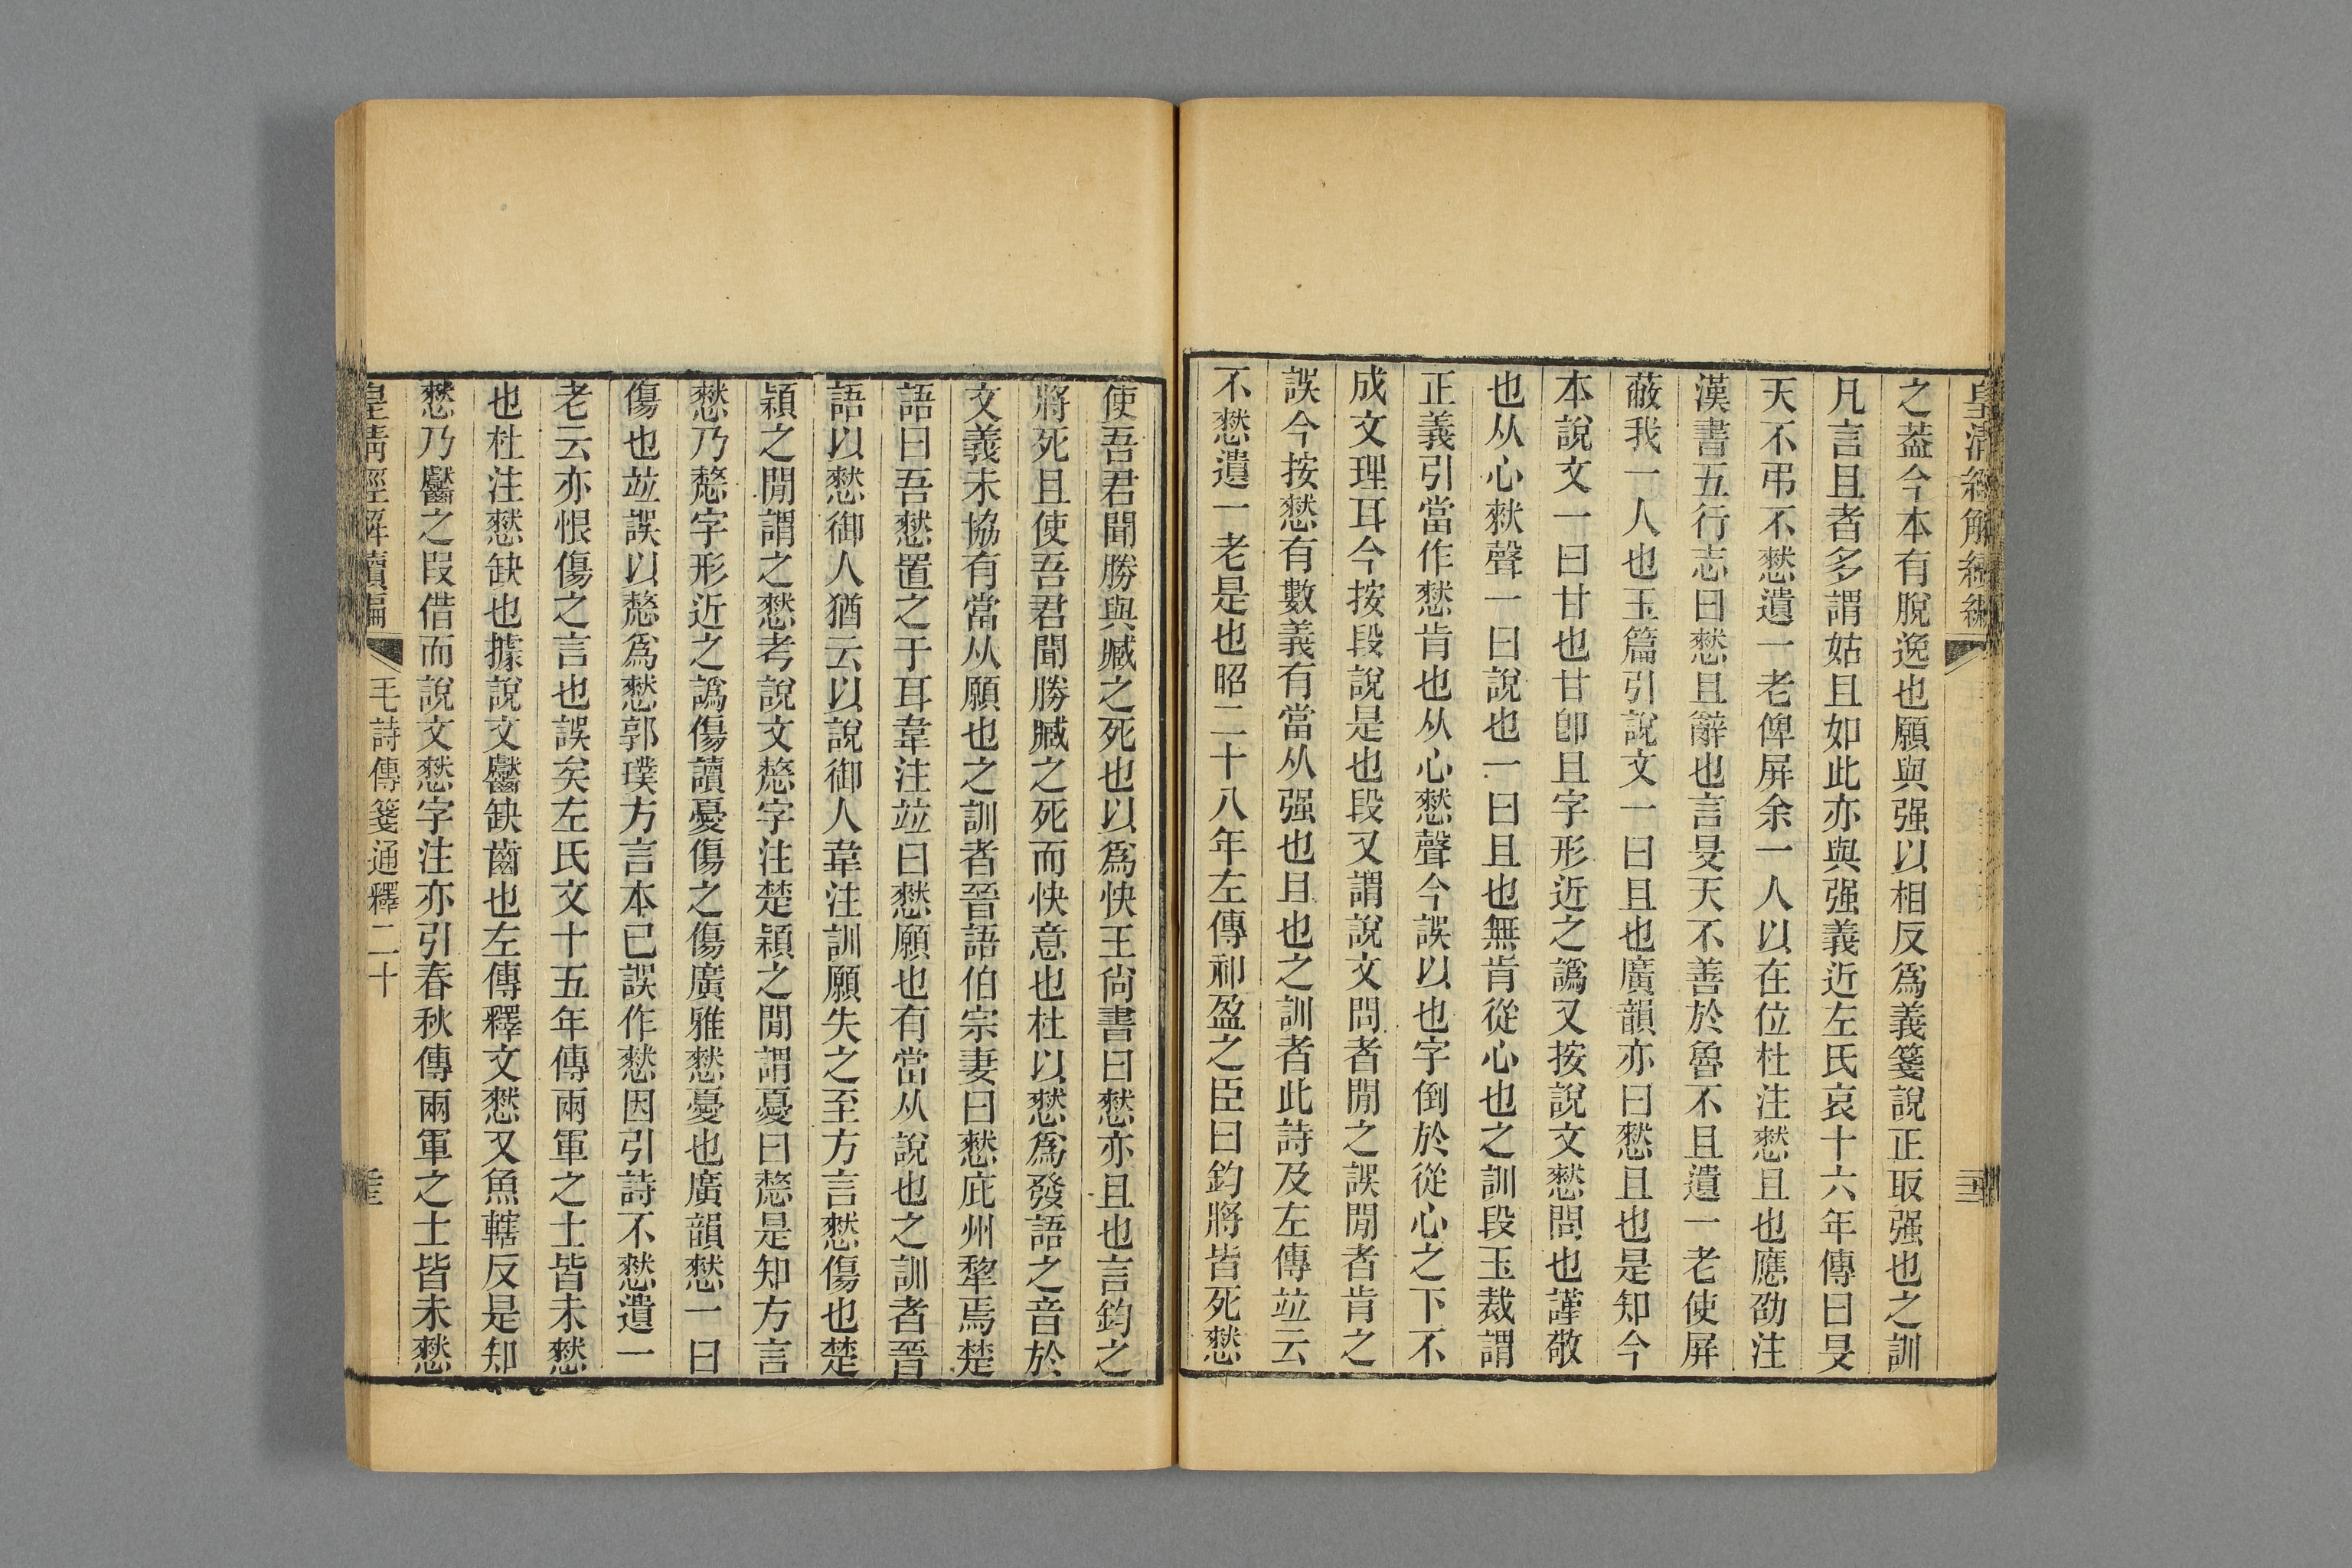 皇清經解續編
之葢今本有脫逸也願與强以相反爲義箋說正取强也之訓
凡言且者多謂姑且如此亦與强義近左氏哀十六年傳曰旻
天不弔不憖遺一老俾屏余一人以在位杜注憖且也應劭注
漢書五行志曰憖且辭也言旻天不善於魯不且遺一老使屏
蔽我一人也玉篇引說文一曰且也廣韻亦曰憖且也是知今
本說文一曰甘也甘卽且字形近之譌又按說文憖問也謹敬
也从心猌聲一曰說也一曰且也無肯從心也之訓段玉裁謂
正義引當作憖肯也从心憖聲今誤以也字倒於從心之下不
成文理耳今按段說是也段又謂說文問者閒之誤閒者肯之
誤今按憖有數義有當从强也且也之訓者此詩及左傳竝云
不憖遺一老是也昭二十八年左傳祁盈之臣曰鈞將皆死憖
使吾君聞勝與臧之死也以爲快王尙書曰憖亦且也言鈞之
將死且使吾君聞勝臧之死而快意也杜以憖爲發語之音於
文義未協有當从願也之訓者晉語伯宗妻曰憖庇州犂焉楚
語曰吾憖置之于耳韋注竝曰憖願也有當从說也之訓者晉
語以憖御人猶云以說御人韋注訓願失之至方言憖傷也楚
潁之閒謂之憖考說文㥶字注楚潁之閒謂憂曰㥶是知方言
憖乃㥶字形近之譌傷讀憂傷之傷廣雅憖憂也廣韻憖一曰
傷也竝誤以㥶爲憖郭璞方言本已誤作憖因引詩不憖遺一
老云亦恨傷之言也誤矣左氏文十五年傳兩軍之士皆未憖
也杜注憖缺也據說文齾缺齒也左傳釋文憖又魚轄反是知
憖乃齾之叚借而說文憖字注亦引春秋傳兩軍之士皆未憖
皇淸經解續編
毛詩傳箋通釋二十